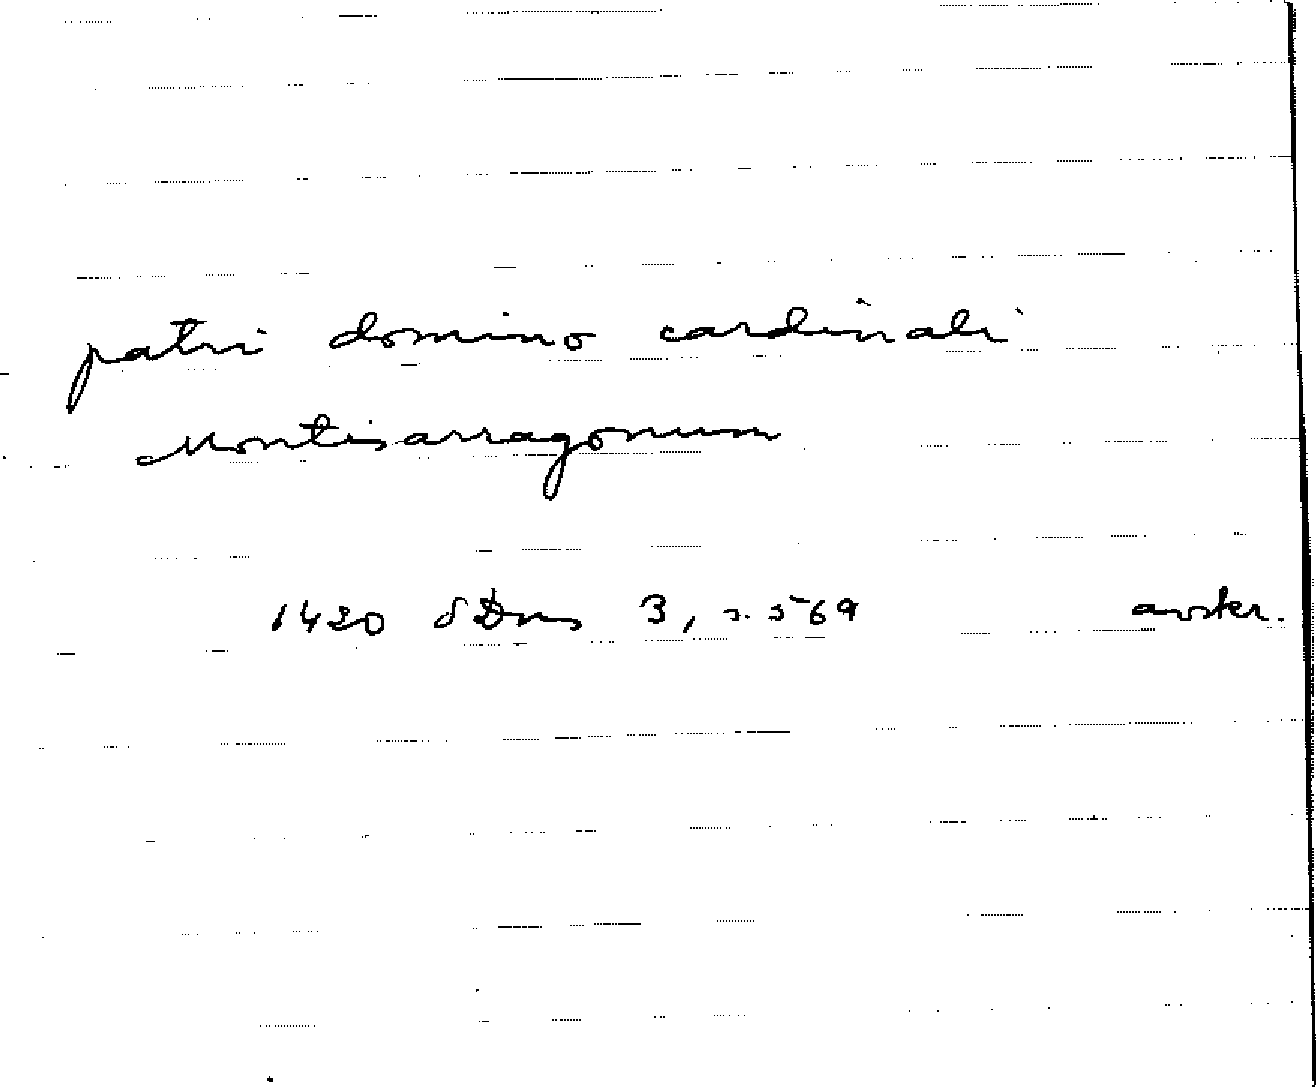 patri domino cardinali
Montisarragonum
1420 SDns 3, s. 569 avskr.